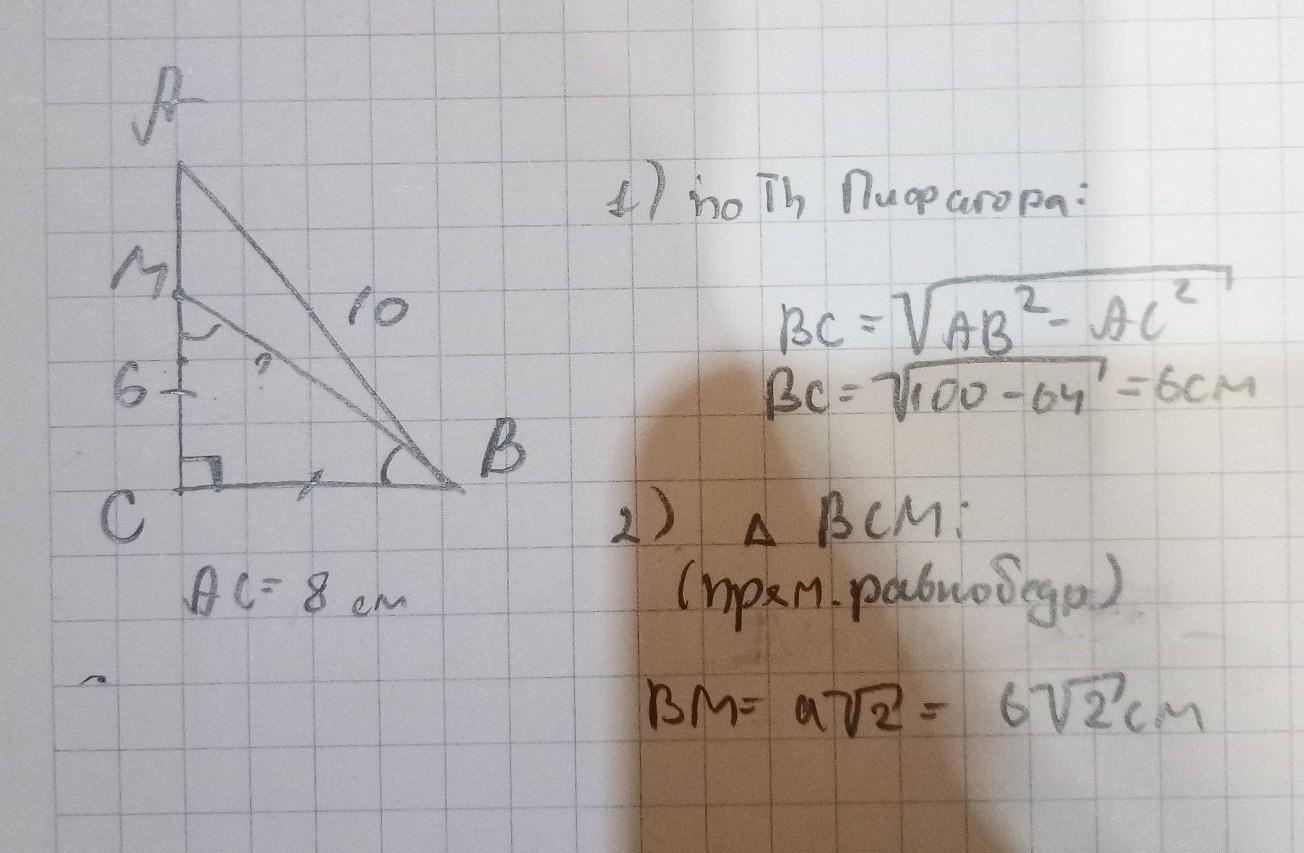 A
M
10
?
6
B
C
AC = 8 см
1) по Th Пифагора:
BC = √AB² - AC²
BC = √100 - 64 = 6см
2) Δ BCM:
(прям. равнобедр)
BM = a√2 = 6√2 см